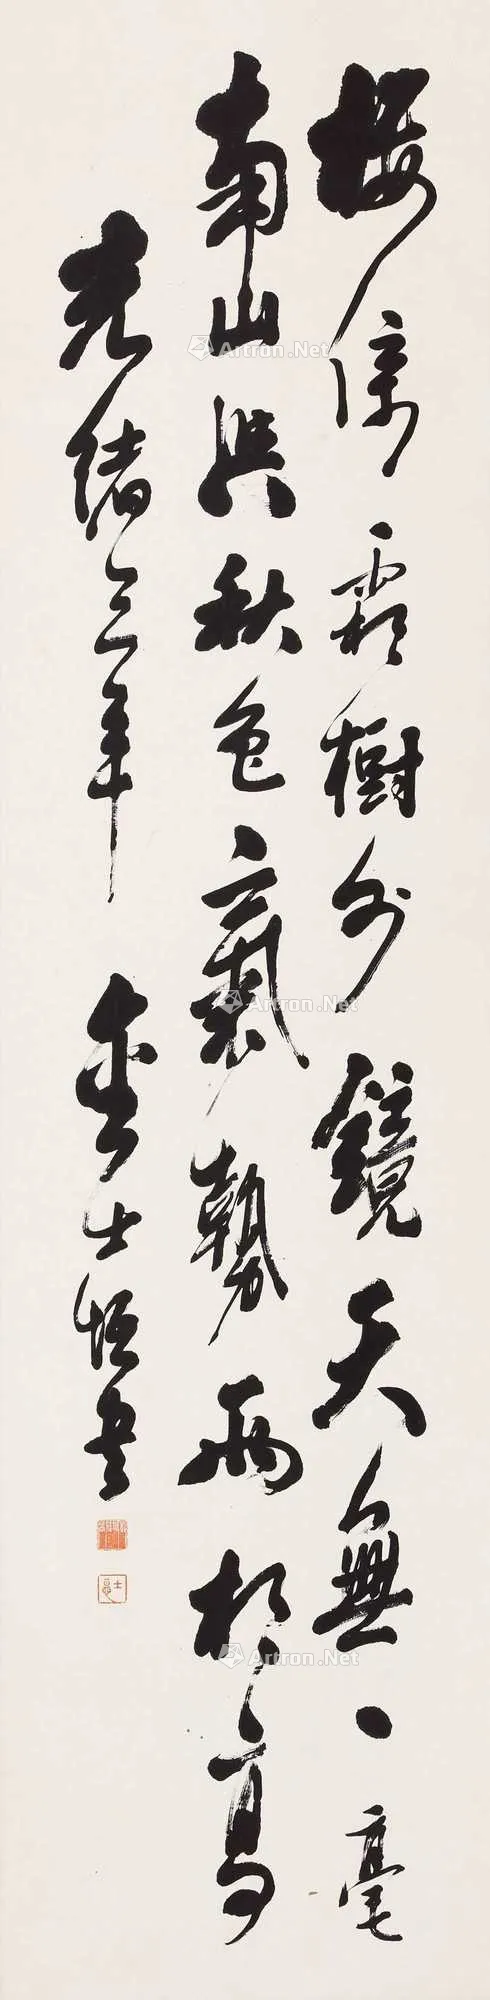 楼倚霜树外镜天無一毫
南山與秋色氣勢两相高
光緒三年 士恒書
Artron.Net
Artron.Net
Artron.Net